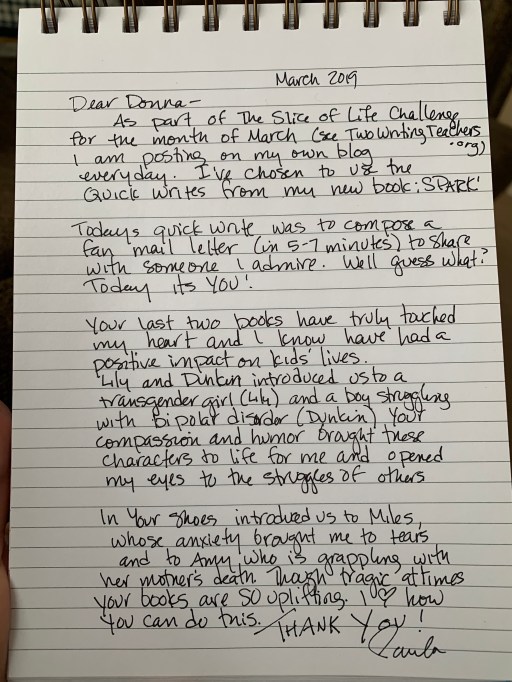 March 2019
Dear Donna-
As part of The Slice of Life Challenge
for the month of March (see TwoWritingTeachers
.org)
I am posting on my own blog
everyday. I've chosen to use the
Quick Writes from my new book: SPARK!
Todays quick write was to compose a
fan mail letter (in 5-7 minutes) to share
with someone I admire. Well guess what?
Today its YOU!
Your last two books have truly touched
my heart and I know have had a
positive impact on kids' lives.
Lily and Dunkin introduced us to a
transgender girl (Lily) and a boy struggling
with Bipolar disorder (Dunkin) Your
compassion and humor brought these
characters to life for me and opened
my eyes to the struggles of others
In Your Shoes introduced us to Miles,
whose anxiety brought me to tears
and to Amy, who is grappling with
her mother's death. Though tragic at times
your books are SO uplifting. I ♡ how
you can do this. THANK YOU!